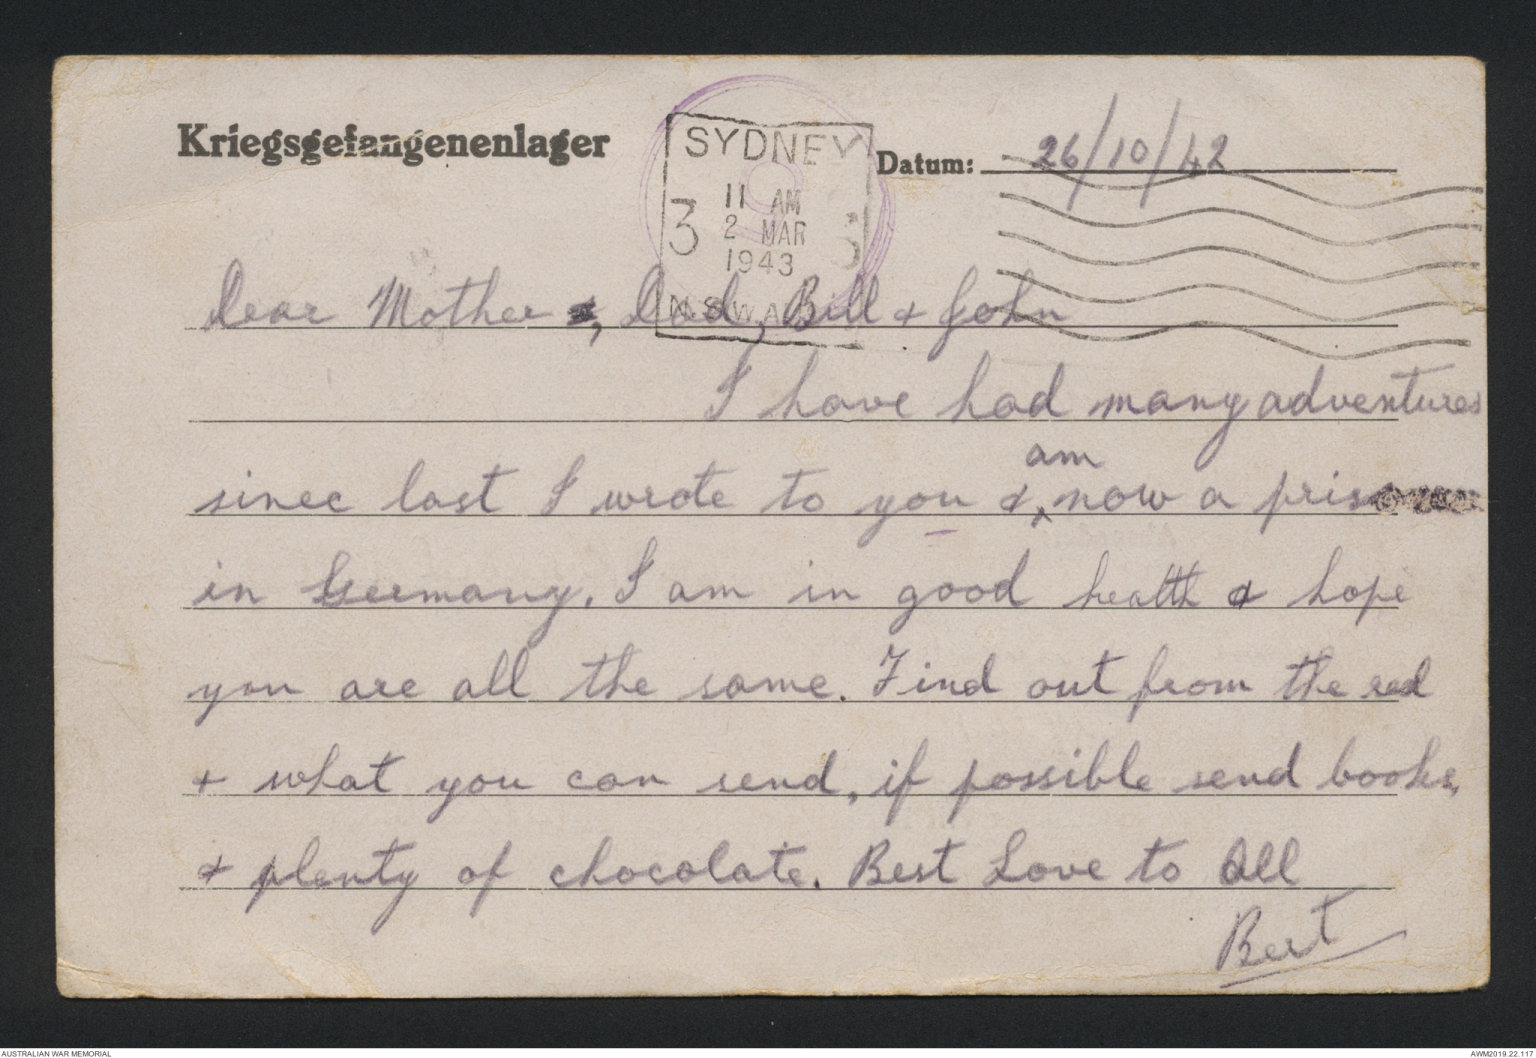 Kriegsgefangenenlager
SYDNEY
11 AM
3 2 MAR 3
1943
N.S.W. A
Datum: 26/10/42
Dear Mother, Dad, Bill & John
I have had many adventures
am
since last I wrote to you & now a prisoner
in Germany. I am in good health & hope
you are all the same. Find out from the red
+ what you can send, if possible send books,
& plenty of chocolate. Best Love to All
Bert
AUSTRALIAN WAR MEMORIAL
AWM2019.22.117